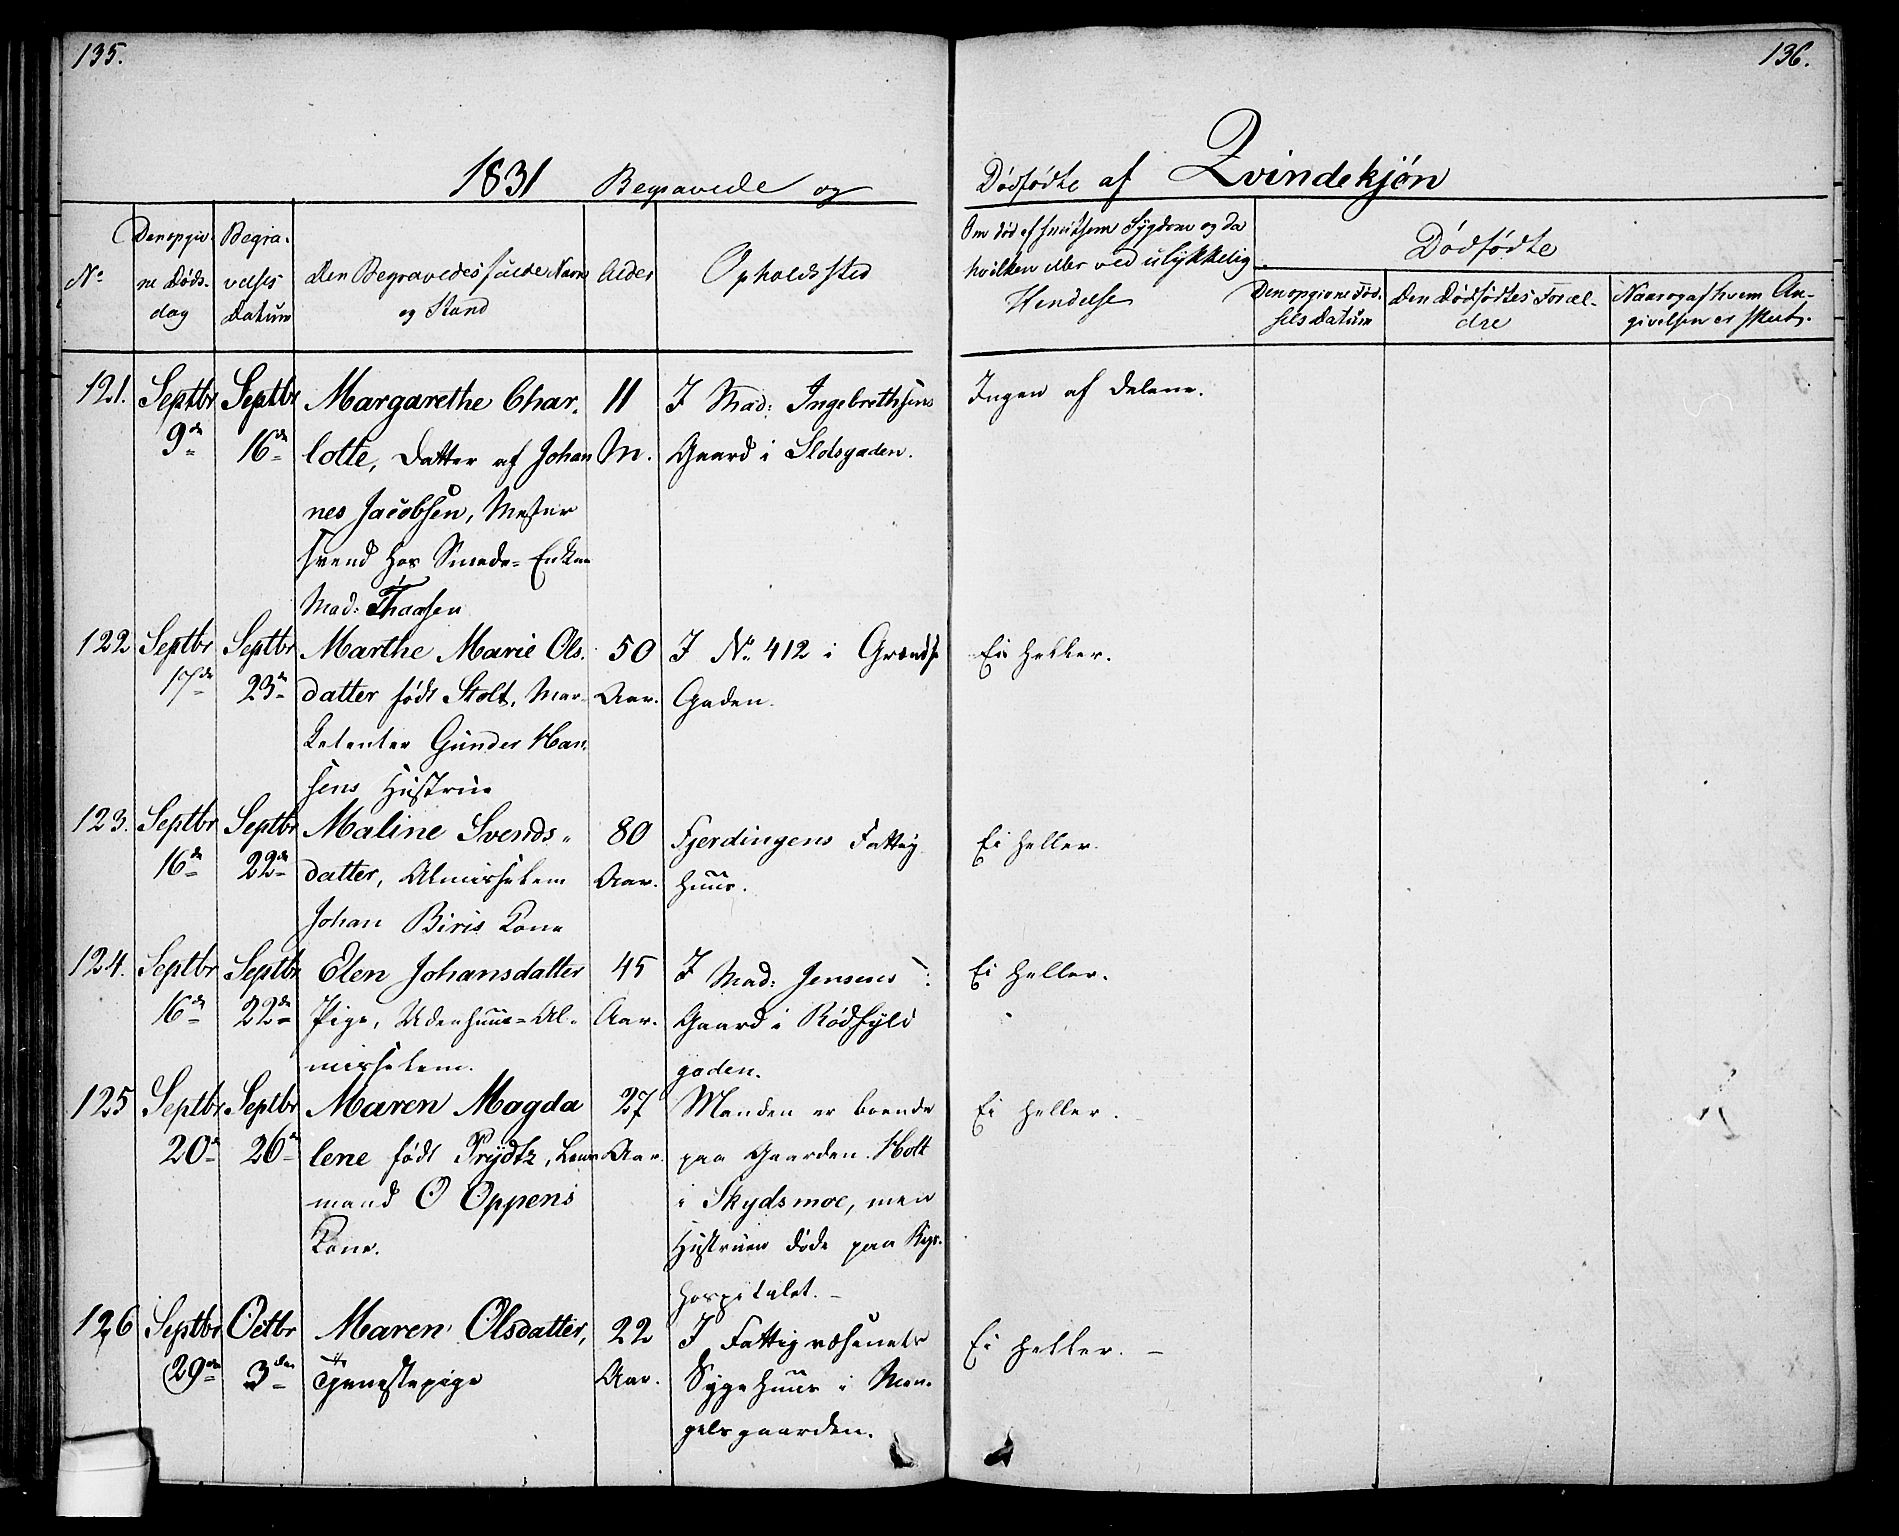 135.
136.
1831 Begravede og
Dødfødte af Qvindekjön
No
Den opgiv-
ne Døds-
dag
Begra-
velses
Datum
Den Begravedes fulde Navn
og Stand
Alder
Opholdssted
Om død af smitsom Sygdom og da
hvilken eller ved ulykkelig
Hendelse
Dødfødte
Den opgivne Fød-
sels Datum
Den Dødfødtes Foræl-
dre
Naar og af hvem An-
givelsen er skeet.
121.
Septbr
9de
Septbr
16de
Margarethe Char-
lotte, Datter af Johan
nes Jacobsen, Mester
svend hos Smede-Enken
Mad: Thaasen
11
M.
I Mad: Ingebrethsens
Gaard i Slotsgaden.
Ingen af Delene.
122
Septbr
17de
Septbr
23de
Marthe Marie Ols-
datter født Stolt, Mar-
ketenter Gunder Han-
sens Hustrue
50
Aar.
I No 412 i Grændse
Gaden.
Ei heller.
123.
Septbr
16de
Septbr
22de
Maline Svends-
datter, Almisselem
Johan Biris Kone
80
Aar.
Fjerdingens Fattig
huus.
Ei heller.
124.
Septbr
16de
Septbr
22de
Elen Johansdatter
Pige, Udenhuus-Al-
misselem.
45
Aar.
I Mad: Jensens
Gaard i Rødfyld
gaden.
Ei heller.
125
Septbr
20de
Septbr
26de
Maren Magda
lene født Prydtz,
mand O Oppens
Kone.
27
Aar.
Manden er boende
paa Gaarden Holt
i Skydsmoe, men
Hustruen døde paa Rigs-
hospitalet. –
Ei heller.
126
Septbr
29de
Octbr
3die
Maren Olsdatter,
Tjenestepige
22
Aar.
I Fattigvæsenets
Sygehuus i Man-
gelsgaarden.
Ei heller. –